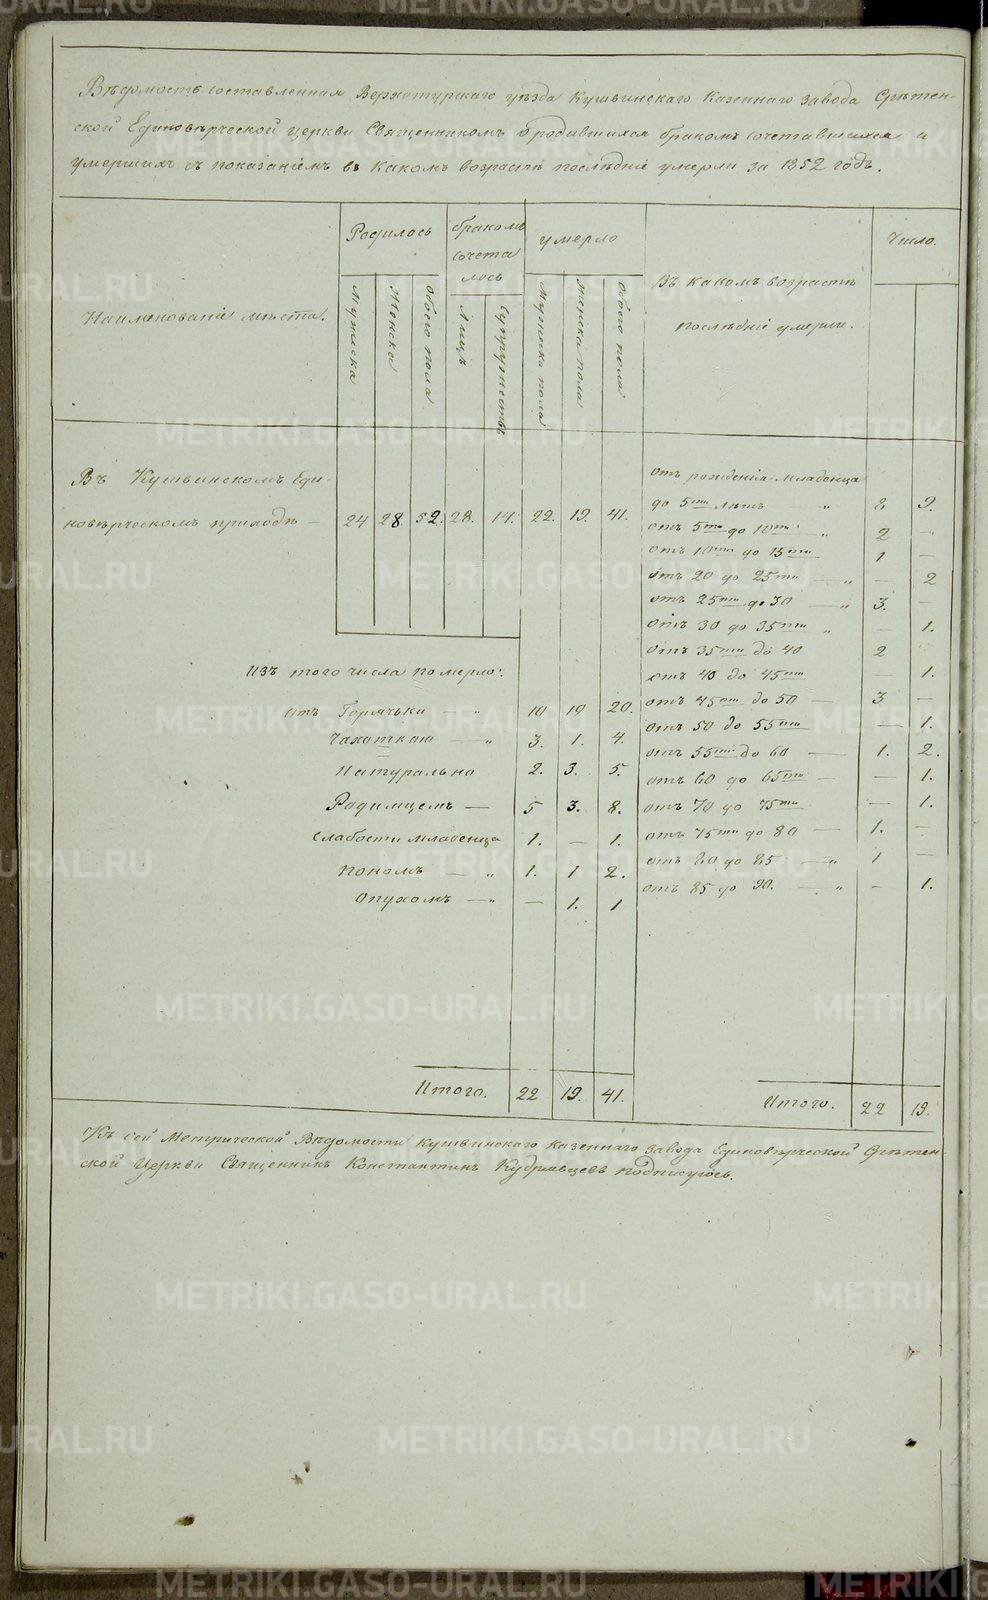 Вѣдомость составленная Верхотурскаго уѣзда Кушвинскаго Казеннаго завода Срѣтен-
ской Единовѣрческой церкви Священникомъ о родившихся бракомъ сочетавшихся и
умершихъ съ показаніемъ въ какомъ возрастѣ послѣдніе умерли за 1852 годъ.
Наименованіе мѣста.
Родилось
Мужска
Женска
обоего пола
бракомъ
сочета
лось
Лицъ
Супружествъ
умерло
Мужска пола
женска пола
обоего пола
Въ какомъ возрастѣ
послѣдніе умерли.
Число.
Въ Кушвинскомъ Еди-
новѣрческомъ приходѣ — 24 28 52. 28. 14. 22. 19. 41.
Изъ того числа померло:
отъ Горячьки — „ 10 10 20.
Чахоткою — „ 3. 1. 4.
Натурально 2. 3. 5.
Родимцемъ — 5 3. 8.
Слабости младенца 1. — 1.
Поносомъ — „ 1. 1 2.
Опухомъ — „ — 1. 1
Итого. 22 19. 41.
отъ рожденія младенца
до 5ти лѣтъ „ 8 9.
отъ 5ти до 10ти „ 2 —
отъ 10ти до 15ти 1 —
отъ 20 до 25ти — „ — 2
отъ 25ти до 30 — „ 3. —
отъ 30 до 35ти „ — 1.
отъ 35ти до 40 2
отъ 40 до 45ти — 1.
отъ 45ти до 50 — 3 —
отъ 50 до 55ти — 1.
отъ 55ти до 60 — 1. 2.
отъ 60 до 65ти — — 1.
отъ 70 до 75ти — 1.
отъ 75ти до 80 — 1. —
отъ 80 до 85 — „ 1 —
отъ 85 до 90. — „ — 1.
Итого. 22 19.
Къ сей Метрической Вѣдомости Кушвинскаго Казеннаго завода Единовѣрческой Срѣтен-
ской Церкви Священникъ Константинъ Кудрявцевъ подписуюсь.
METRIKI.GASO-URAL.RU